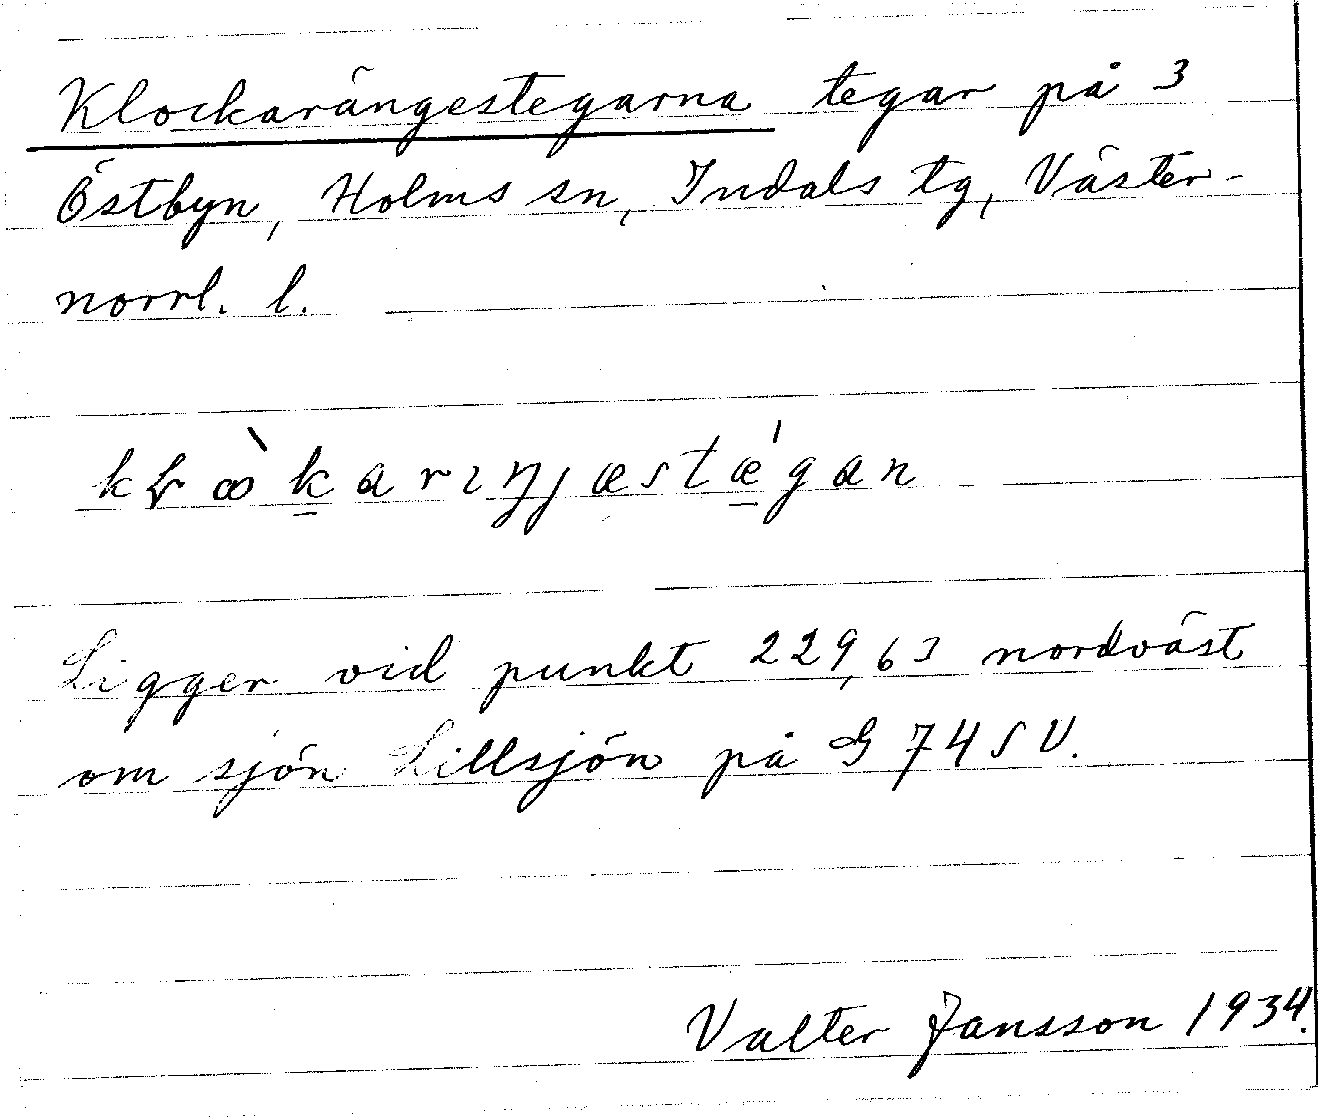 Klockarängestegarna tegar på 3
Östbyn, Holms sn, Indals tg, Väster-
norrl. l.
Ligger vid punkt 229,63 nordväst
om sjön Lillsjön på G 74 SV.
Valter Jansson 1934.